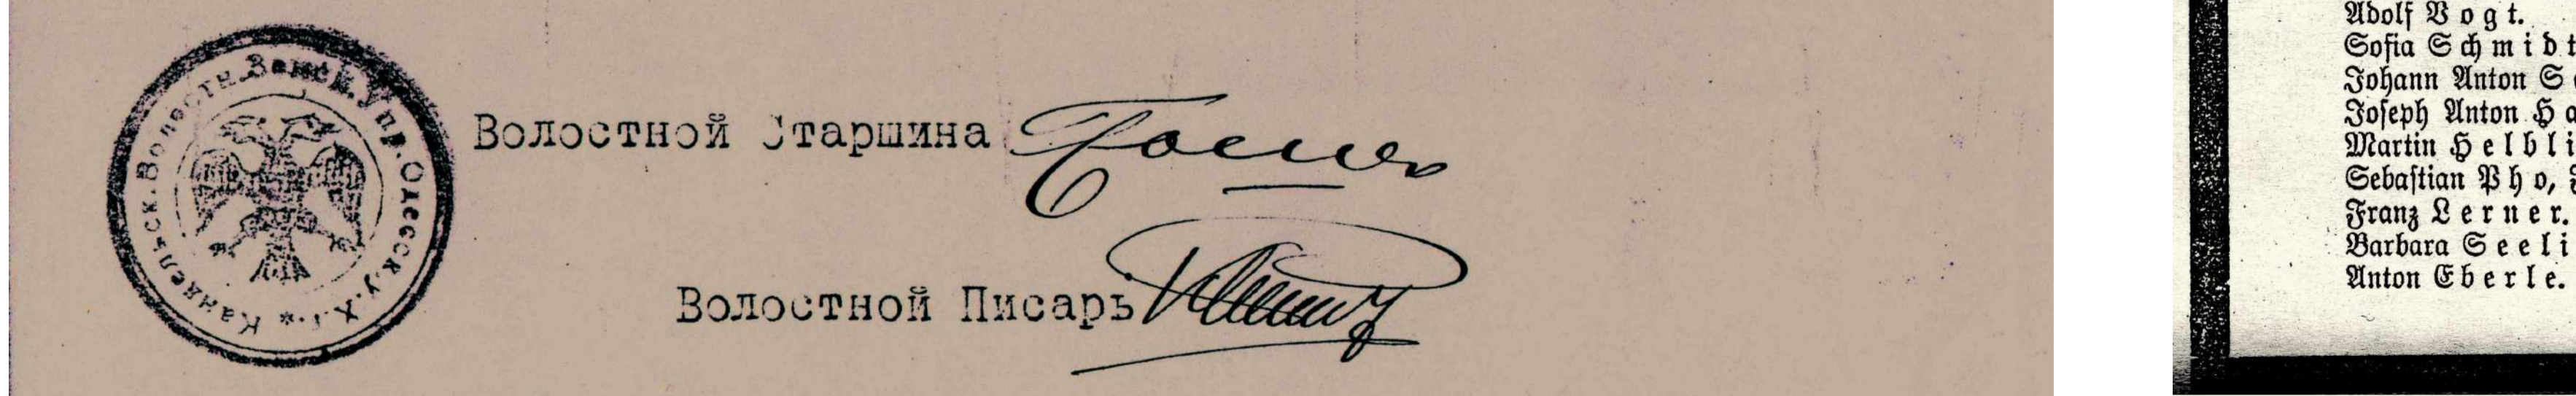 Кандельск. Волостн. Земск. Упр. Одесск. у. Х. г. *
Волостной Старшина
Волостной Писарь
Adolf Vogt.
Sofia Schmidt
Johann Anton S
Joseph Anton Ha
Martin Helbli
Sebastian Pho,
Franz Lerner.
Barbara Seeli
Anton Eberle.